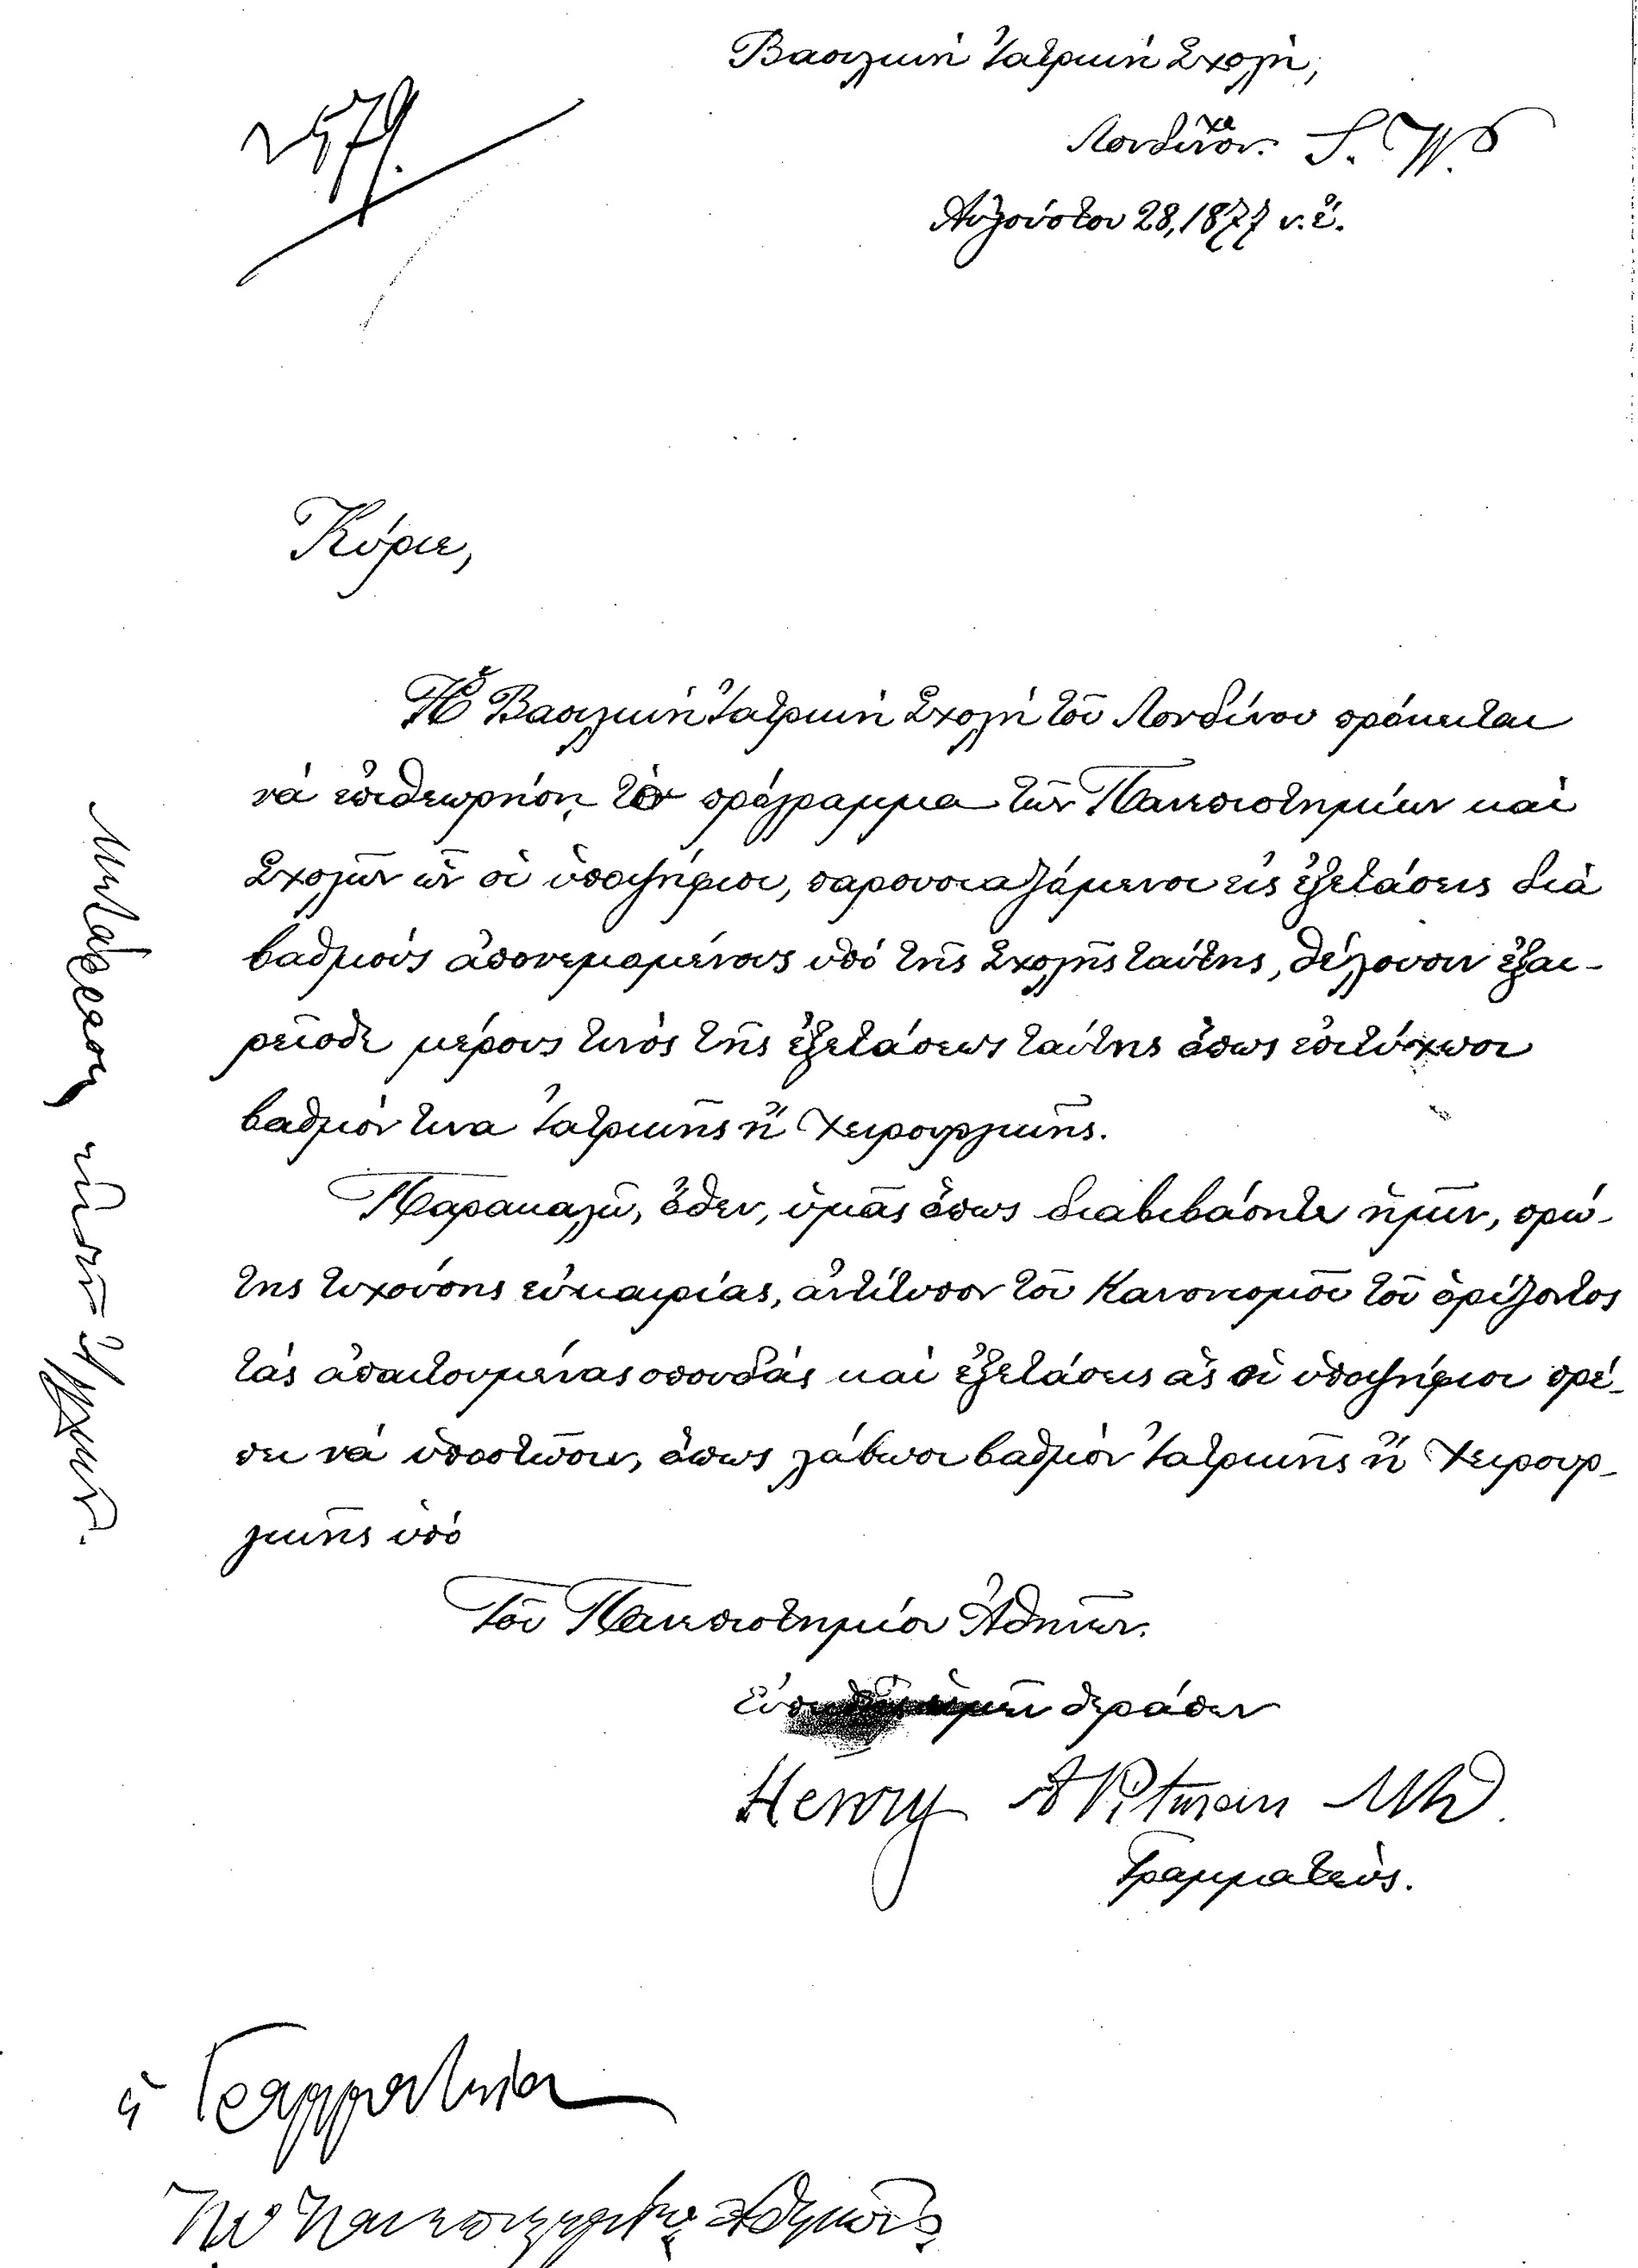 2579.
Βασιλικὴ Ἰατρικὴ Σχολὴ,
Λονδῖνον. S. W.
Αὐγούστου 28, 1877 ν. ἔ.
Κύριε,
Ἡ Βασιλικὴ Ἰατρικὴ Σχολὴ τοῦ Λονδίνου πρόκειται
νὰ ἐπιθεωρήσῃ τὸ πρόγραμμα τῶν Πανεπιστημίων καὶ
Σχολῶν ὧν οἱ ὑποψήφιοι, παρουσιαζόμενοι εἰς ἐξετάσεις διὰ
βαθμοὺς ἀπονεμομένους ὑπὸ τῆς Σχολῆς ταύτης, θέλουσιν ἐξαι-
ρεῖσθε μέρους τινὸς τῆς ἐξετάσεως ταύτης ὅπως ἐπιτύχωσι
βαθμὸν τινα Ἰατρικῆς ἢ Χειρουργικῆς.
Παρακαλῶ, ὅθεν, ὑμᾶς ὅπως διαβιβάσητε ἡμῖν, πρώ-
της τυχούσης εὐκαιρίας, ἀντίτυπον τοῦ Κανονισμοῦ τοῦ ὁρίζοντος
τὰς ἀπαιτουμένας σπουδὰς καὶ ἐξετάσεις ἃς οἱ ὑποψήφιοι πρέ-
πει νὰ ὑποστῶσιν, ὅπως λάβωσι βαθμὸν Ἰατρικῆς ἢ Χειρουρ-
γικῆς ὑπὸ
Τοῦ Πανεπιστημίου Ἀθηνῶν.
ὑμῶν θεράπων
Henry A Pitman MD.
Γραμματεὺς.
Γραμματεία